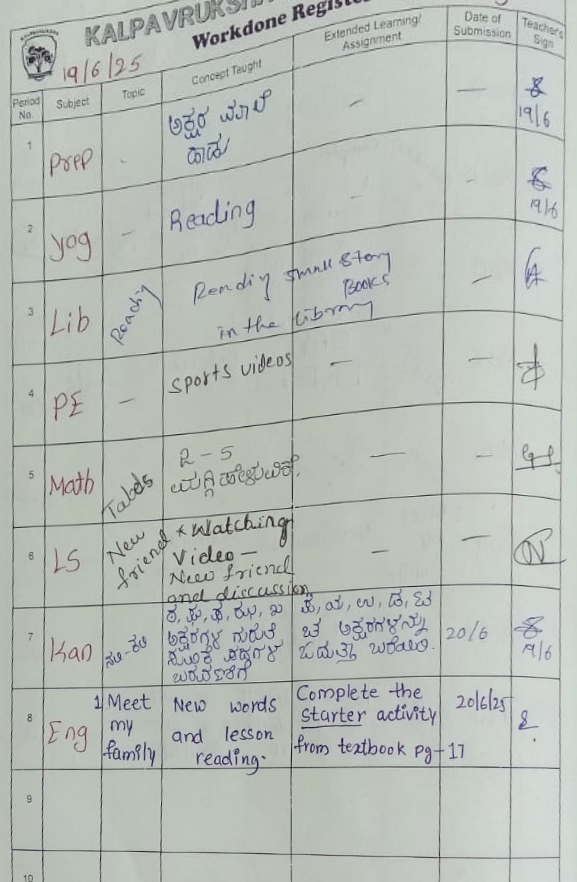 KALPAVRUKSHA
Workdone Register
19/6/25
Period No. Subject Topic Concept Taught Extended Learning/ Assignment Date of Submission Teacher's Sign
1 Prep - ಅಕ್ಷರ ಮಾಲೆ ಹಾಡು - - 19/6
2 yog - Reading - - 19/6
3 Lib Reading Reading small story Books in the library -
4 PE - Sports videos - -
5 Math Tabels 2-5 ಮಗ್ಗಿ ಹೇಳುವಿಕೆ. - -
6 LS New friend * Watching Video - New friend and discussion - -
7 Kan ನಲಿ-ಕಲಿ ಅಕ್ಷರಗಳ ಗುರುತು ಪದಗಳ ಅಕ್ಷರಗಳನ್ನು ಓದುತ್ತಾ ಬರೆಯಿರಿ. 20/6 19/6
8 Eng 1 Meet my family New words and lesson reading. Complete the starter activity from textbook pg-17 20/6/25
9
10